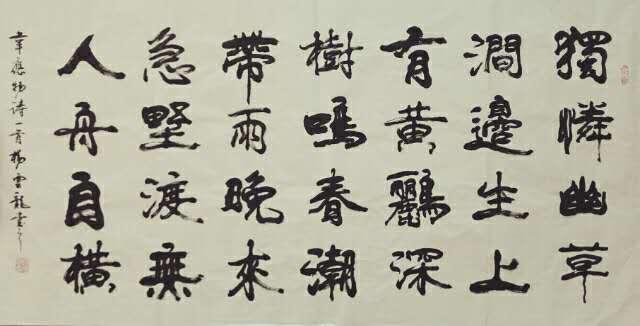 獨憐幽草
澗邊生上
有黃鸝深
樹鳴春潮
帶雨晚來
急墅渡無
人舟自橫
韋應物詩一首楊雲龍書